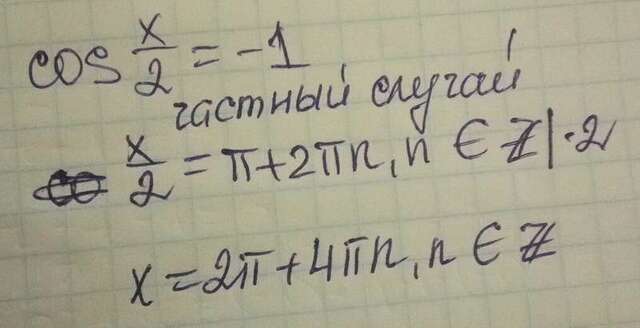 cos x/2 = -1
частный случай
x/2 = π + 2πn, n ∈ Z | · 2
x = 2π + 4πn, n ∈ Z